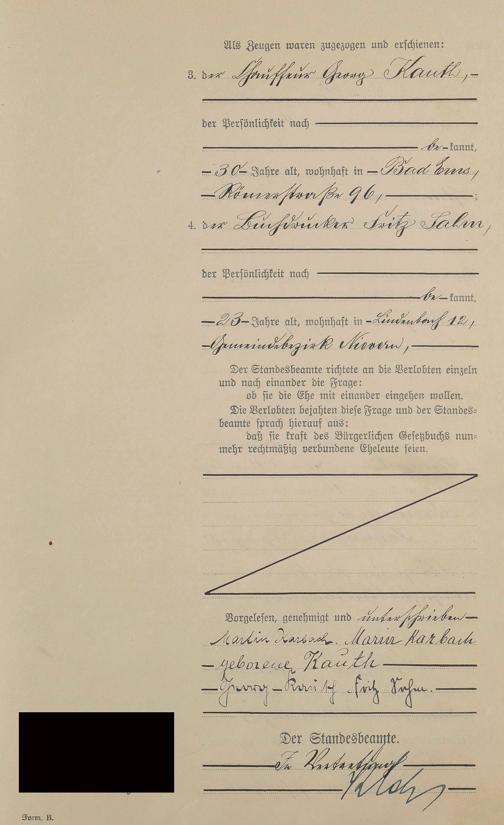 Als Zeugen waren zugezogen und erschienen:
3. der Chauffeur Georg Kauth,
der Persönlichkeit nach
be-kannt,
30 Jahre alt, wohnhaft in Bad Ems,
Römerstraße 96,
4. der Buchdrucker Fritz
der Persönlichkeit nach
be-kannt,
23 Jahre alt, wohnhaft in Lindenbach 12,
Gemeindebezirk Nievern,
Der Standesbeamte richtete an die Verlobten einzeln
und nach einander die Frage:
ob sie die Ehe mit einander eingehen wollen.
Die Verlobten bejahten diese Frage und der Standes-
beamte sprach hierauf aus:
daß sie kraft des Bürgerlichen Gesetzbuchs nun-
mehr rechtmäßig verbundene Eheleute seien.
Vorgelesen, genehmigt und unterschrieben
Martin Karbach. Maria Karbach
geborene Kauth
Georg Kauth Fritz
Der Standesbeamte.
In Vertretung
Form. B.